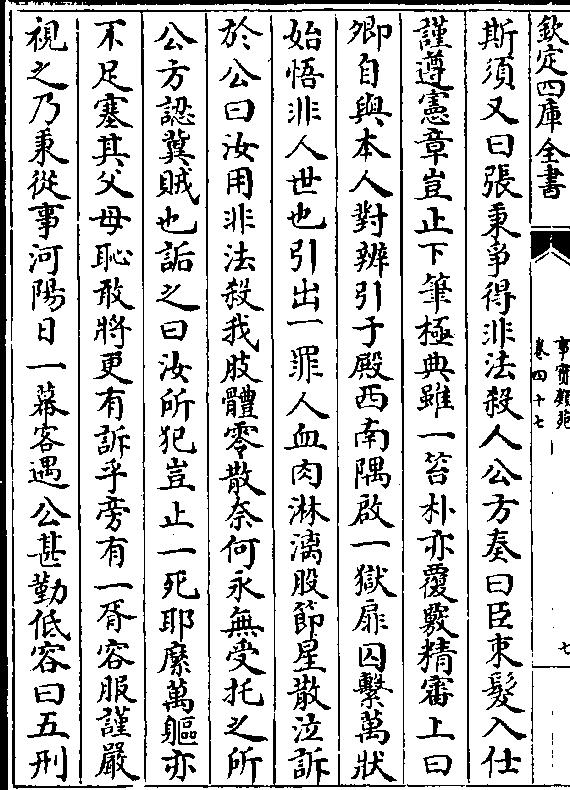 欽定四庫全書
事實類苑
卷四十七
七
斯須又曰張秉爭得非法殺人公方奏曰臣束髮入仕
謹遵憲章豈止下筆極典雖一笞朴亦覆覈精審上曰
卿自與本人對辨引于殿西南隅啟一獄扉囚繫萬狀
始悟非人世也引出一罪人血肉淋漓股節星散泣訴
於公曰汝用非法殺我肢體零散奈何永無受托之所
公方認冀賊也詬之曰汝所犯豈止一死耶縻萬軀亦
不足塞其父母恥敢將更有訴乎旁有一胥容服謹嚴
視之乃秉從事河陽日一幕客遇公甚勤低容曰五刑